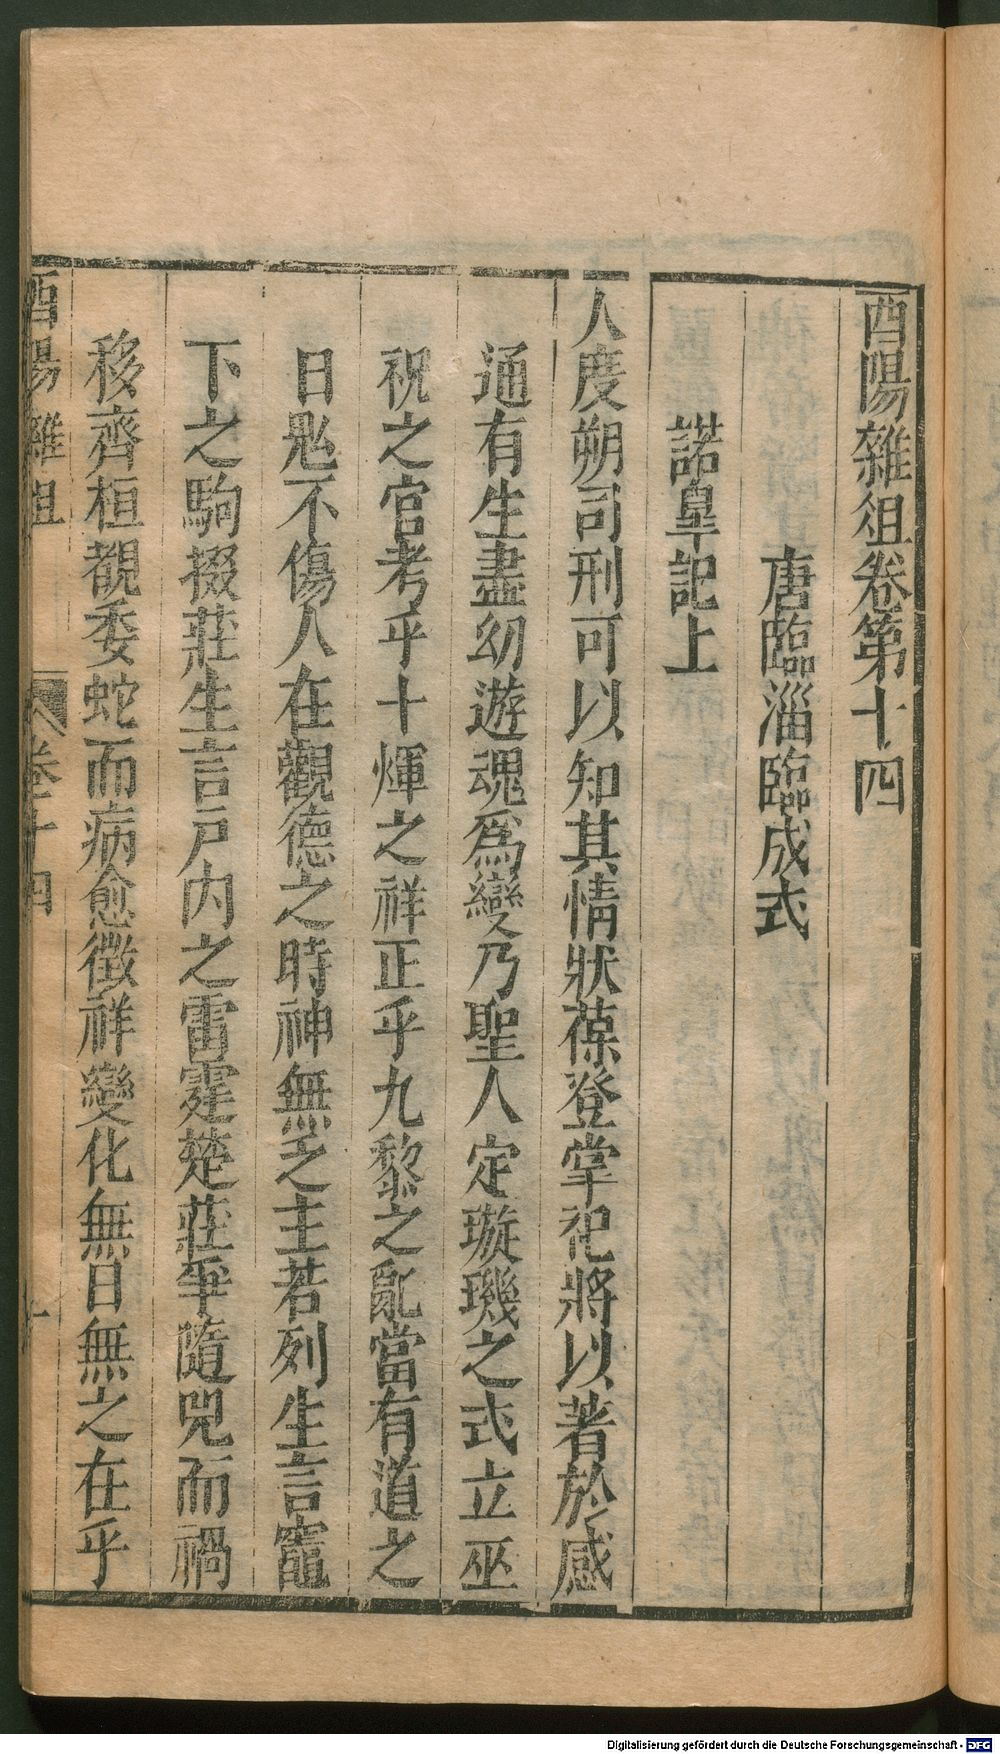 酉陽雜俎卷第十四
唐臨淄臨成式
諾皐記上
人度朔司刑可以知其情狀葆登掌祀將以著於感
通有生盡幻遊魂爲變乃聖人定璇璣之式立巫
祝之官考乎十煇之祥正乎九黎之亂當有道之
日鬼不傷人在觀德之時神無乏主若列生言竈
下之駒掇莊生言戸内之雷霆楚莊爭隨兕而禍
移齊桓覩委蛇而病愈徴祥變化無日無之在乎
酉陽雜俎
卷十四
一
Digitalisierung gefördert durch die Deutsche Forschungsgemeinschaft - DFG